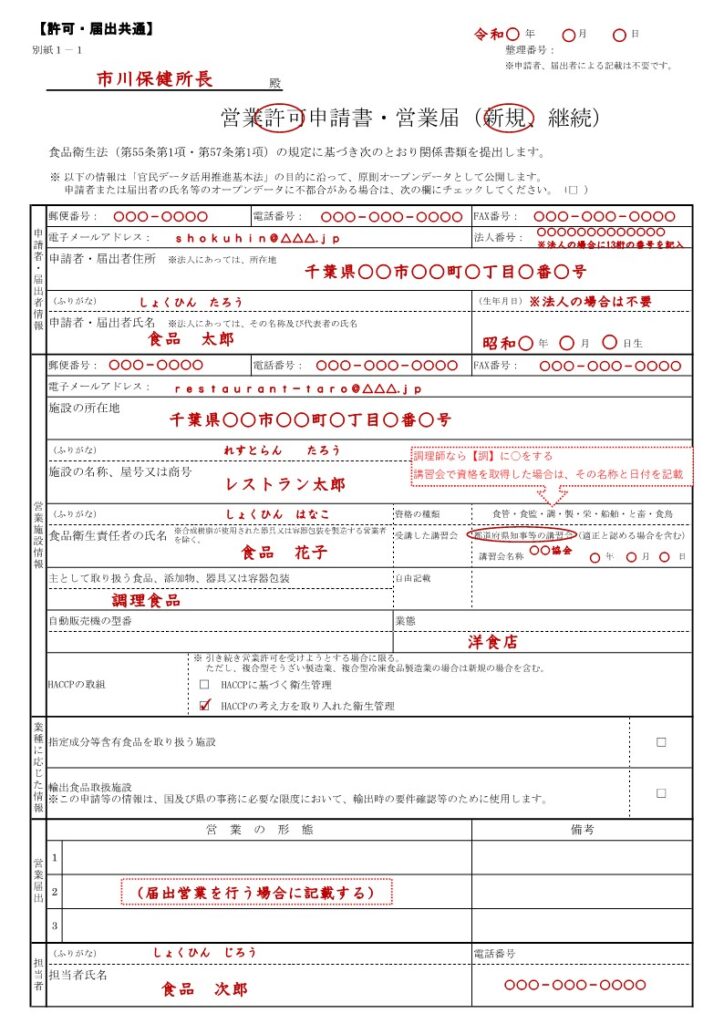 【許可・届出共通】
別紙１－１
令和〇 年 〇月 〇 日
整理番号：
※申請者、届出者による記載は不要です。
市川保健所長 殿
営業許可申請書・営業届（新規、継続）
食品衛生法（第55条第1項・第57条第1項）の規定に基づき次のとおり関係書類を提出します。
※ 以下の情報は「官民データ活用推進基本法」の目的に沿って、原則オープンデータとして公開します。
申請者または届出者の氏名等のオープンデータに不都合がある場合は、次の欄にチェックしてください。（□ ）
申請者・届出者情報
郵便番号： 〇〇〇－〇〇〇〇 電話番号： 〇〇〇－〇〇〇－〇〇〇〇 FAX番号： 〇〇〇－〇〇〇－〇〇〇〇
電子メールアドレス： ｓｈｏｋｕｈｉｎ＠△△△.ｊｐ 法人番号： 〇〇〇〇〇〇〇〇〇〇〇〇〇
※法人の場合に13桁の番号を記入
申請者・届出者住所 ※法人にあっては、所在地
千葉県〇〇市〇〇町〇丁目〇番〇号
（ふりがな） しょくひん たろう （生年月日） ※法人の場合は不要
申請者・届出者氏名 ※法人にあっては、その名称及び代表者の氏名
食品 太郎 昭和〇 年 〇 月 〇 日生
営業施設情報
郵便番号： 〇〇〇－〇〇〇〇 電話番号： 〇〇〇－〇〇〇－〇〇〇〇 FAX番号： 〇〇〇－〇〇〇－〇〇〇〇
電子メールアドレス： ｒｅｓｔａｕｒａｎｔ－ｔａｒｏ＠△△△.ｊｐ
施設の所在地
千葉県〇〇市〇〇町〇丁目〇番〇号
（ふりがな） れすとらん たろう
施設の名称、屋号又は商号
レストラン太郎
調理師なら【調】に○をする
講習会で資格を取得した場合は、その名称と日付を記載
（ふりがな） しょくひん はなこ 資格の種類 食管・食監・調・製・栄・船舶・と畜・食鳥
食品衛生責任者の氏名 ※合成樹脂が使用された器具又は容器包装を製造する営業者を除く。 受講した講習会 都道府県知事等の講習会（適正と認める場合を含む）
食品 花子 講習会名称 〇〇協会 〇 年 〇 月 〇 日
主として取り扱う食品、添加物、器具又は容器包装 自由記載
調理食品
自動販売機の型番 業態
洋食店
HACCPの取組
※ 引き続き営業許可を受けようとする場合に限る。
ただし、複合型そうざい製造業、複合型冷凍食品製造業の場合は新規の場合を含む。
□ HACCPに基づく衛生管理
☑ HACCPの考え方を取り入れた衛生管理
業種に応じた情報
指定成分等含有食品を取り扱う施設 □
輸出食品取扱施設 □
※この申請等の情報は、国及び県の事務に必要な限度において、輸出時の要件確認等のために使用します。
営業届出
営 業 の 形 態 備考
1
2 （届出営業を行う場合に記載する）
3
担当者
（ふりがな） しょくひん じろう 電話番号
担当者氏名
食品 次郎 〇〇〇－〇〇〇－〇〇〇〇